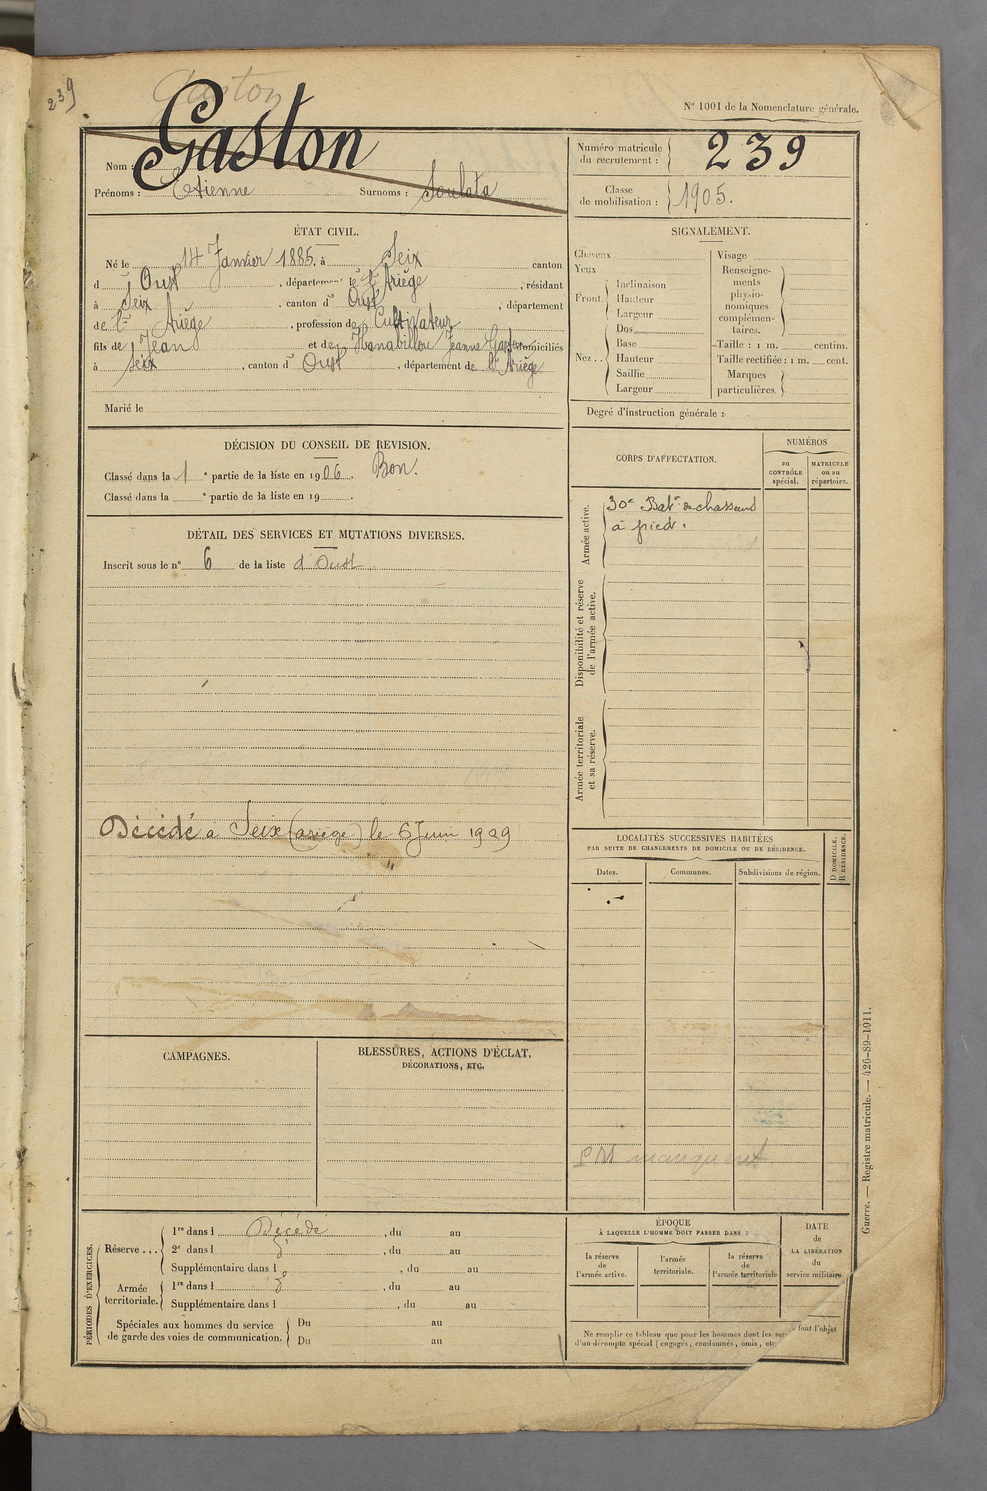 239
Gaston
N° 1001 de la Nomenclature générale.
Gaston
Nom :
Prénoms : Etienne Surnoms : Soulata
Numéro matricule du recrutement : 239
Classe de mobilisation : 1905.
ÉTAT CIVIL.
Né le 14 Janvier 1885, à Seix canton
d' Oust, département de l'Ariège, résidant
à Seix, canton d' Oust, département
de l' Ariège, profession de Cultivateur
fils de Jean et de Jeanne domiciliés
à Seix, canton d' Oust, département de l'Ariège
Marié le
SIGNALEMENT.
Cheveux
Yeux
Front.
Inclinaison
Hauteur
Largeur
Nez ..
Dos
Base
Hauteur
Saillie
Largeur
Visage
Renseignements physionomiques complémentaires.
Taille : 1 m. centim.
Taille rectifiée : 1 m. cent.
Marques particulières.
Degré d'instruction générale :
DÉCISION DU CONSEIL DE REVISION.
Classé dans la 1 e partie de la liste en 1906. Bon.
Classé dans la e partie de la liste en 19 .
DÉTAIL DES SERVICES ET MUTATIONS DIVERSES.
Inscrit sous le n° 6 de la liste d'Oust
Décédé a Seix (ariège) le 6 Juin 1929
CORPS D'AFFECTATION.
NUMÉROS
au CONTRÔLE spécial.
MATRICULE ou au répertoire.
Armée active.
30e Bat. de chasseurs
à pied.
Disponibilité et réserve de l'armée active.
Armée territoriale et sa réserve.
LOCALITÉS SUCCESSIVES HABITÉES
PAR SUITE DE CHANGEMENTS DE DOMICILE OU DE RÉSIDENCE.
Dates.
Communes.
Subdivisions de région.
D DOMICILE.
R RÉSIDENCE.
manquent
CAMPAGNES.
BLESSURES, ACTIONS D'ÉCLAT,
DÉCORATIONS, ETC.
PÉRIODES D'EXERCICES.
Réserve ...
1re dans l Décédé, du au
2e dans l , du au
Supplémentaire dans l , du au
Armée territoriale.
1re dans l , du au
Supplémentaire dans l , du au
Spéciales aux hommes du service de garde des voies de communication.
Du au
Du au
ÉPOQUE
À LAQUELLE L'HOMME DOIT PASSER DANS :
la réserve de l'armée active.
l'armée territoriale.
la réserve de l'armée territoriale
DATE de LA LIBÉRATION du service militaire.
Ne remplir ce tableau que pour les hommes dont les font l'objet
d'un décompte spécial (engagés, condamnés, omis, etc
Guerre. — Registre matricule. — 426-89-1911.